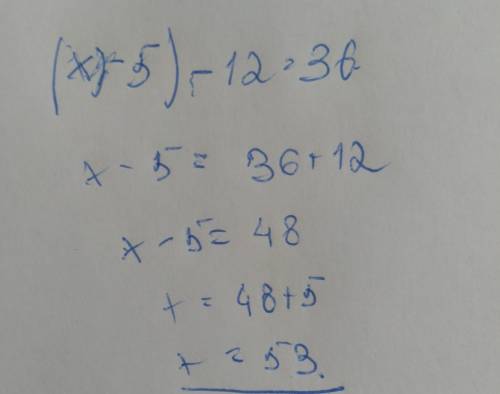 (x-5)-12=36
x-5=36+12
x-5=48
x=48+5
x=53.